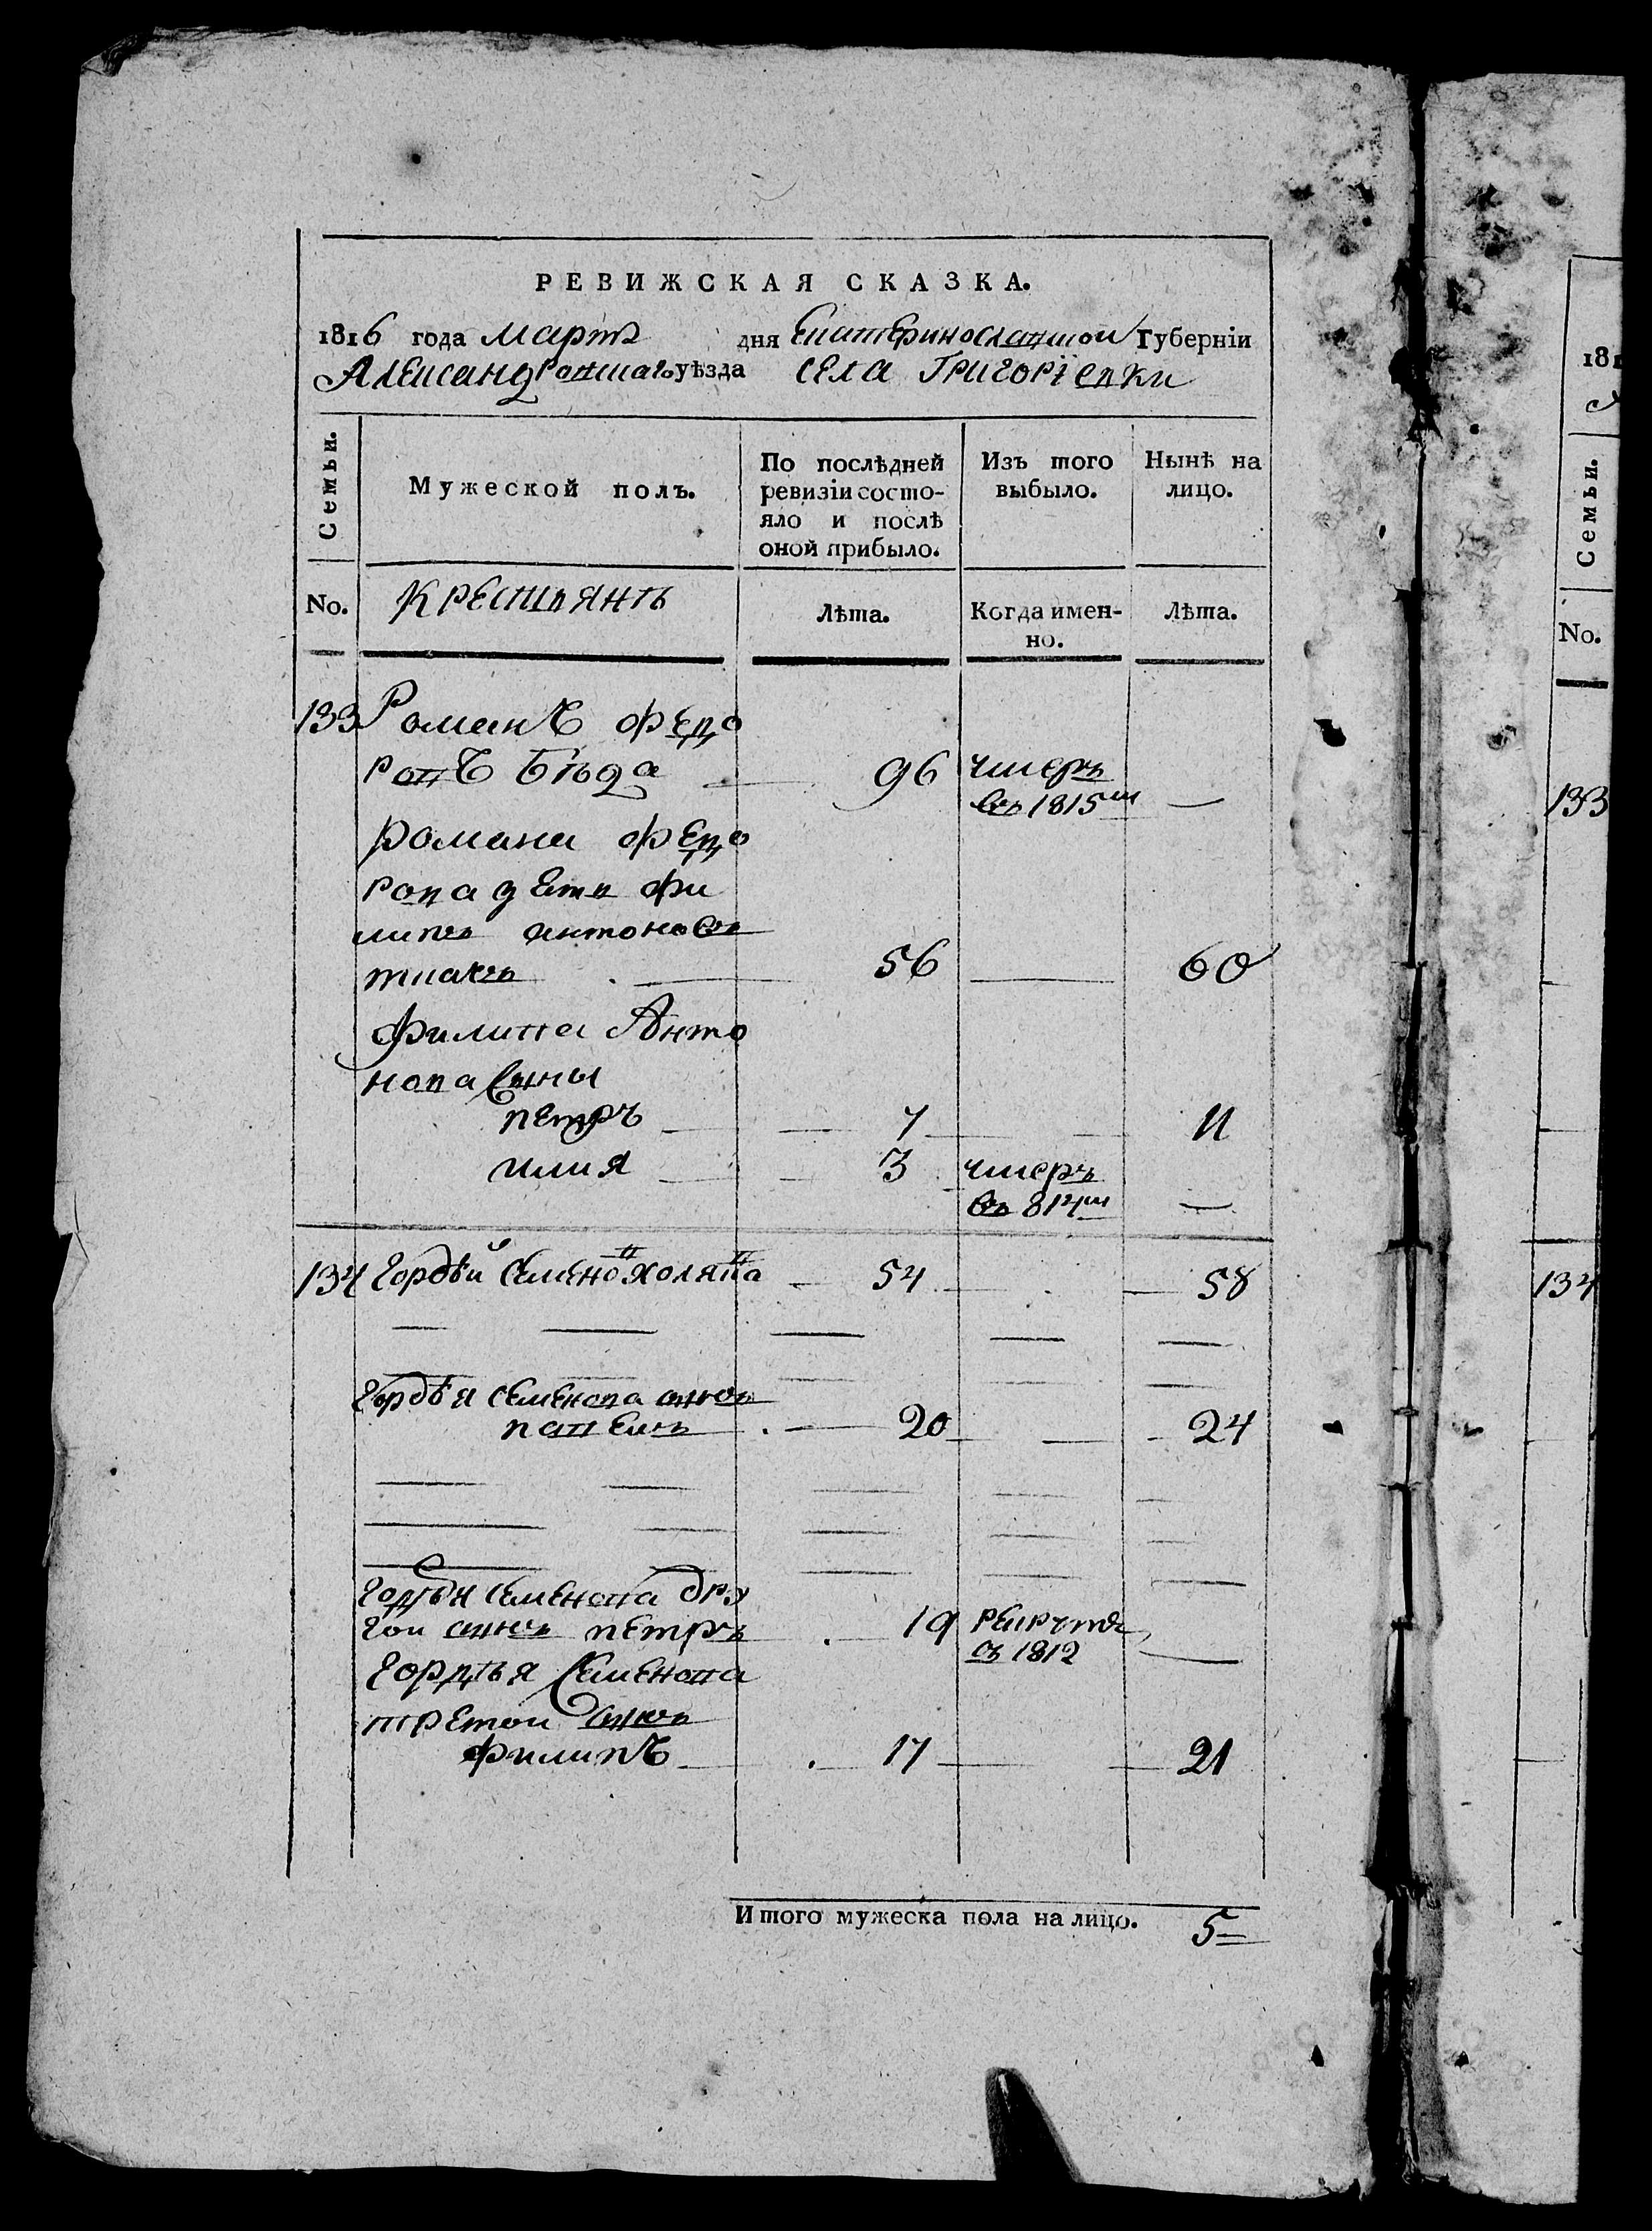 РЕВИЖСКАЯ СКАЗКА.
1816 года Марта дня Екатеринославской Губерніи
Александровскаго уѣзда села Григоріевки
Семьи.
Мужеской полъ.
По послѣдней ревизіи состо-
яло и послѣ
оной прибыло.
Изъ того
выбыло.
Нынѣ на
лицо.
No.
Крестьянъ
Лѣта.
Когда имен-
но.
Лѣта.
133 Романъ Федо
ровъ Бѣда 96 умеръ
въ 1815м —
Романа Федо
рова дети Фи
липъ Антонъ
56 60
Филипа Анто
нова сыны
Петръ 7 11
Илия 3 умеръ
въ 814м —
134 Гордѣй Семенов Холява 54 58
Гордѣя Семенова сынъ
Павелъ 20 24
Гордѣя Семенова дру
гои сынъ Петръ 19 рекрутъ
въ 1812 —
Гордѣя Семенова
третои сынъ
Филипъ 17 21
Итого мужеска пола на лицо. 5
181
Семьи.
No.
133
134